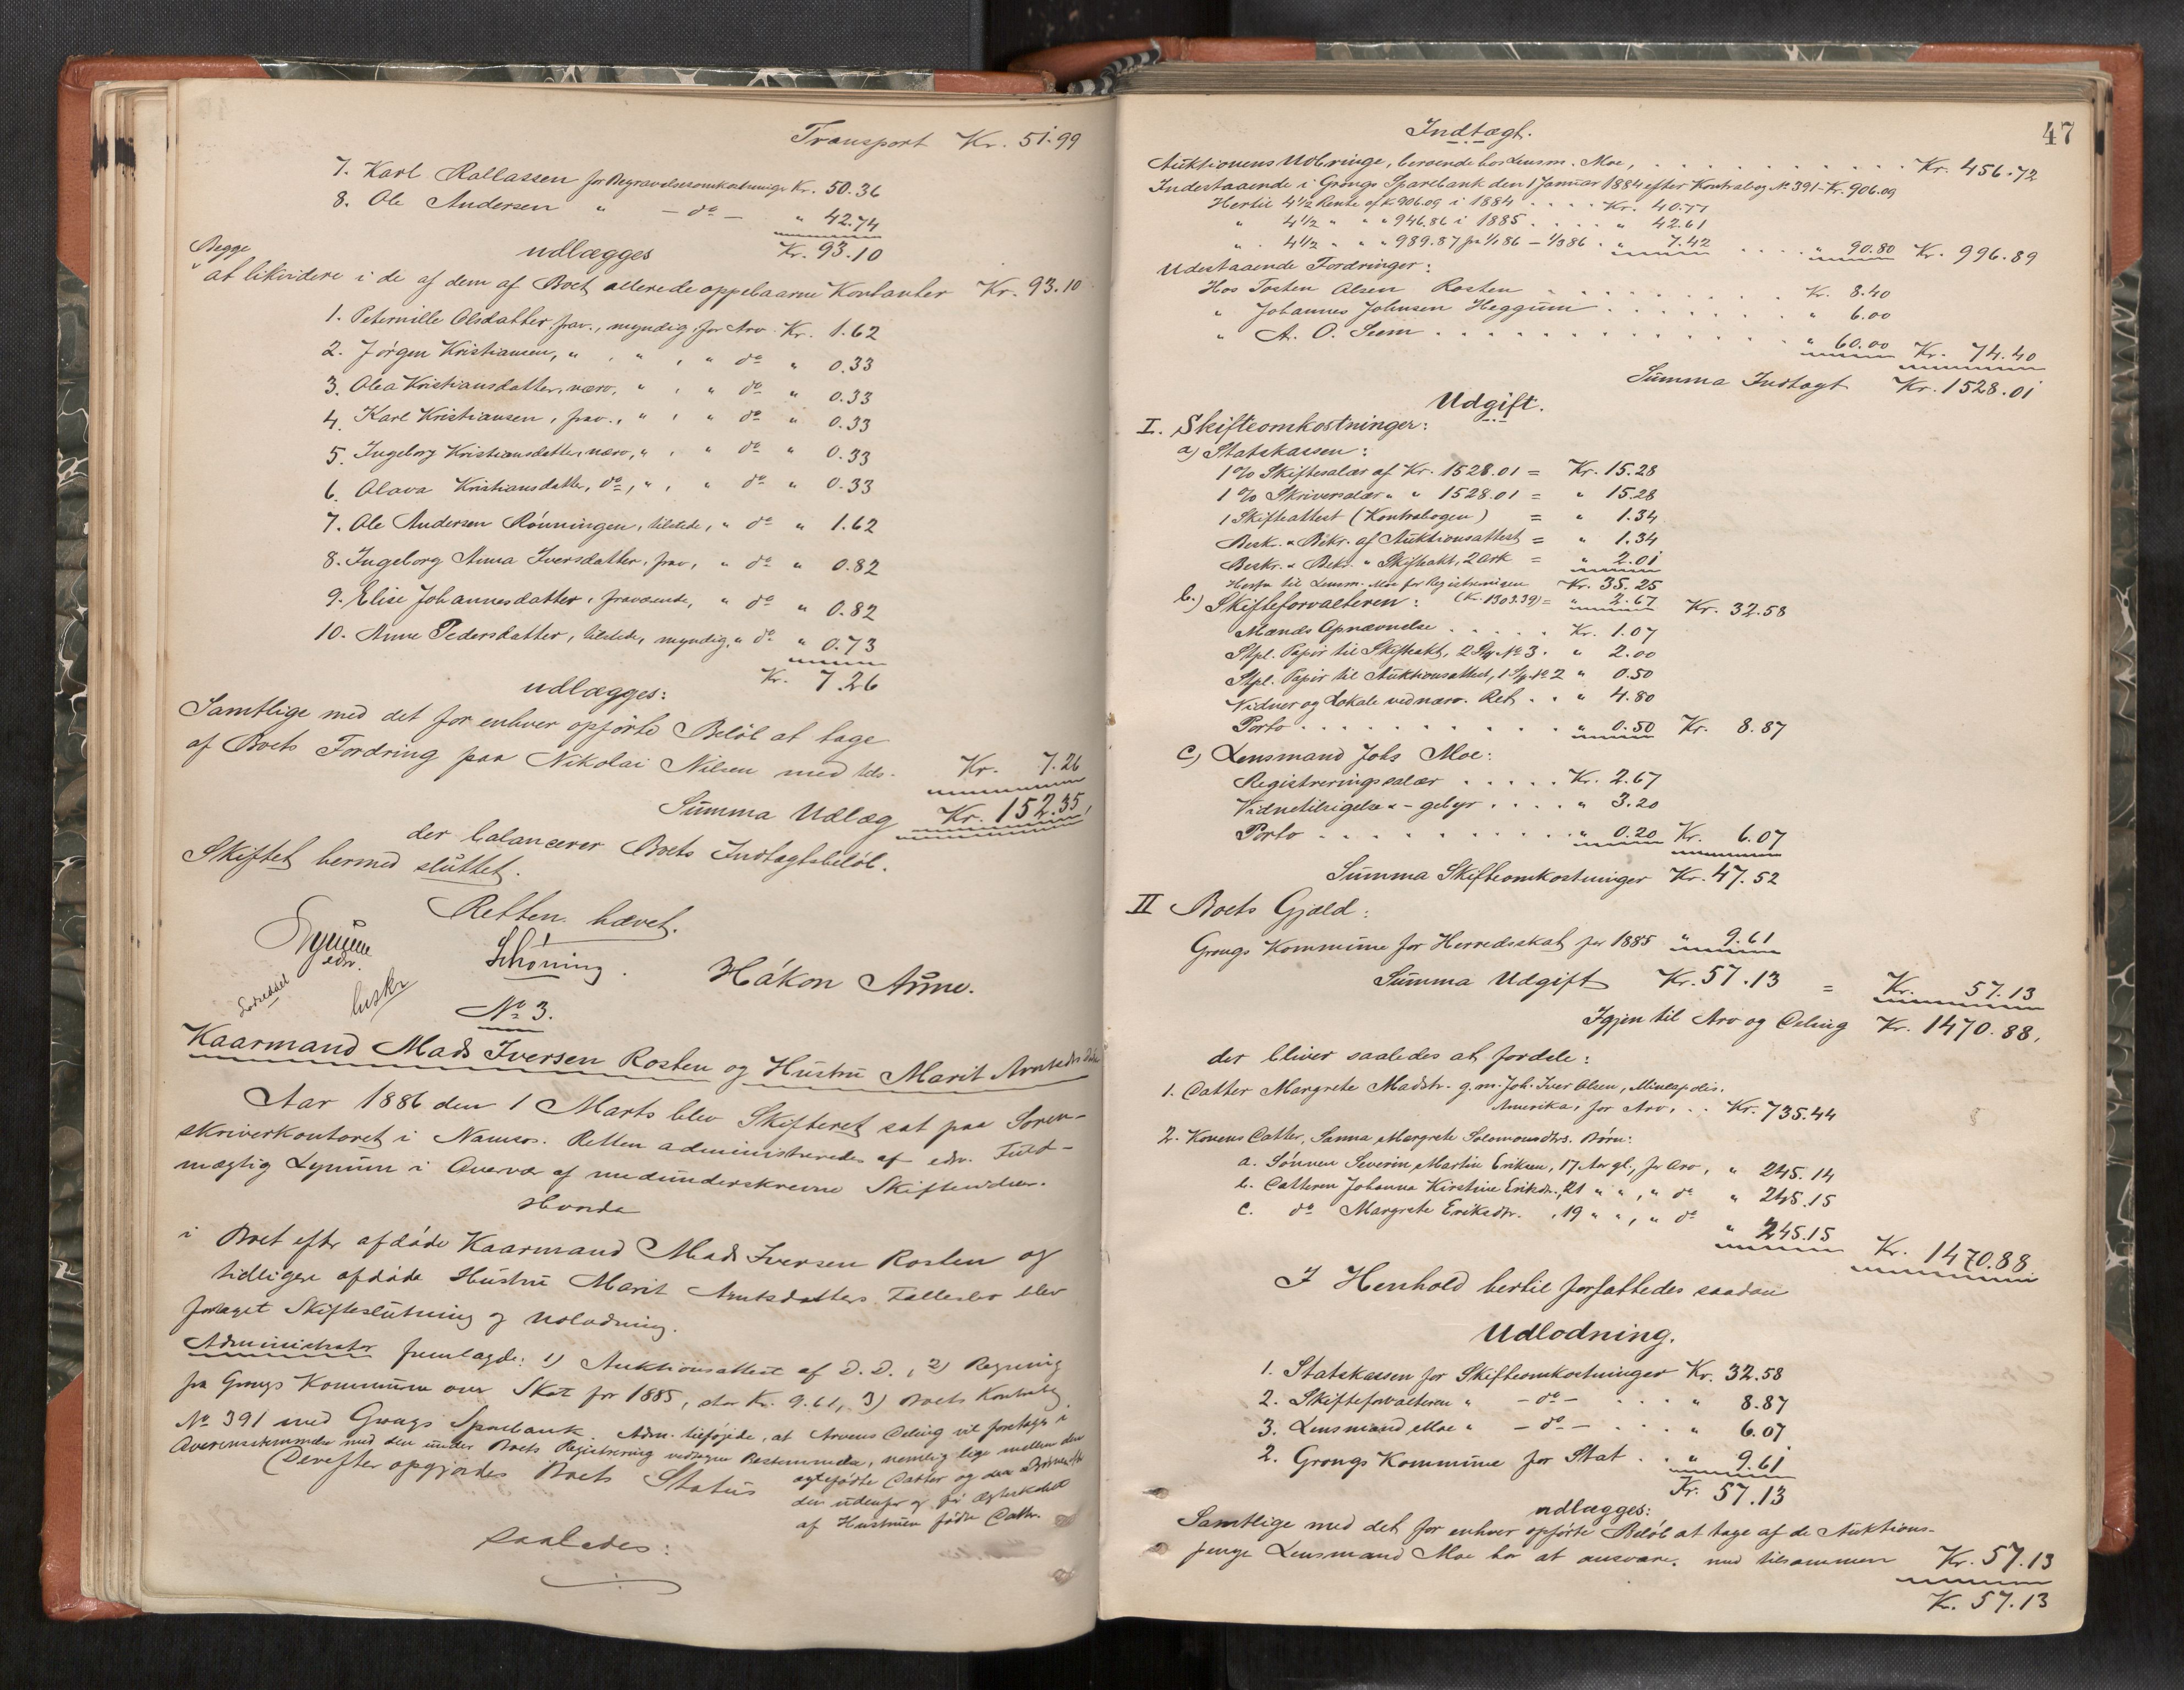 Transport Kr. 51.99
7. Karl Rollassen for Begravelsesomkostninger Kr. 50.36
8. Ole Andersen " — do — " 42.74
udlægges Kr. 93.10
Begge
at likvidere i de af dem af Boet allerede oppebaarne Kontanter Kr. 93.10
1. Peternille Olsdatter, frav., myndig, for Arv. Kr. 1.62
2. Jörgen Kristiansen, " , " , " do " 0.33
3. Olea Kristiansdatter, nærv., " , " do " 0.33
4. Karl Kristiansen, frav., " , " do " 0.33
5. Ingeborg Kristiansdatter, nærv., " , " do " 0.33
6. Olava Kristiansdatter, do, " , " do " 0.33
7. Ole Andersen Rönningen, tilstede, " do " 1.62
8. Ingeborg Anna Iversdatter, frav., " do " 0.82
9. Elise Johannesdatter, fraværende, " do " 0.82
10. Anne Pedersdatter, tilstede, myndig, " do " 0.73
Kr. 7.26
udlægges:
Samtlige med det for enhver opförte Belöb at tage
af Boets Fordring paa Nikolai Nilsen med tils. Kr. 7.26
Summa Udlæg Kr. 152.35,
der balancerer Boets Indtægtsbelöb.
Skiftet hermed sluttet.
Retten hævet.
Lynum
edv.
Schöning.
Håkon Aune.
beskr
No 3.
Kaarmand Mads Iversen Rosten og Hustru Marit Arntsdtrs Döds
Aar 1886 den 1 Marts blev Skifteret sat paa Soren-
skriverkontoret i Namsos. Retten administreredes af edv. Fuld-
mægtig Lynum i Overvær af medunderskrevne Skiftevidner.
Hvorda
i Boet efter afdöde Kaarmand Mads Iversen Rosten og
tidligere afdöde Hustru Marit Arntsdatters Fællesbo blev
foretaget Skifteslutning og Udlodning.
Administrator fremlagde: 1) Auktionsattest af D. D., 2) Regning
fra Grongs Kommune over Skat for 1885, stor Kr. 9.61, 3) Boets Kontrabog
No 391 med Grongs Sparebank. Adm. tilföjede, at Arvens Deling vil foretages i
Overensstemmelse med den under Boets Registrering vedtagne Bestemmelse, nemlig lige mellem den
ægtefödte Datter og
den udenfor og för Ægteskabet
af Hustruen födte Datter.
Derefter opgjordes Boets Status
saaledes:
47
Indtægt.
Auktionens Udbringe, beroende hos Lensm. Moe, . . . . . Kr. 456.72
Indestaaende i Grongs Sparebank den 1 Januar 1884 efter Kontrabog No 391 - Kr. 906.09
Hertil 4 1/2 Rente af K. 906.09 i 1884 . . . . Kr. 40.77
" 4 1/2 " " " 946.86 i 1885 . . . . " 42.61
" 4 1/2 " " " 989.87 fra 1/1 86 — 1/3 86 . " 7.42 . . . . " 90.80 Kr. 996.89
Udestaaende Fordringer:
Hos Tosten Olsen Rosten . . . . . Kr. 8.40
" Johannes Johnsen Heggum . . . . . " 6.00
" A. O. Sem . . . . . " 60.00 Kr. 74.40
Summa Indtægt Kr. 1528.01
Udgift.
I. Skifteomkostninger:
a) Statskassen:
1 % Skiftesalær af Kr. 1528.01 = Kr. 15.28
1 % Skriversalær " " 1528.01 = " 15.28
1 Skifteattest (Kontrabogen) = " 1.34
Besk. & Bekr. af Auktionsattest = " 1.34
Beskr. & Bekr. " Skifteakt, 2 Ark = " 2.01
Kr. 35.25
Herfra til Lensm. Moe for Registreringen (Kr. 1303.39) = " 2.67 Kr. 32.58
b.) Skifteforvalteren:
Mænds Opnævnelse . . . . . Kr. 1.07
Stpl. Papir til Skifteakt, 2 St. No 3. " 2.00
Stpl. Papir til Auktionsattest, 1 St. No 2 " 0.50
Vidner og Lokale ved nærv. Ret . . " 4.80
Porto . . . . . " 0.50 Kr. 8.87
c) Lensmand Johs Moe:
Registreringssalær . . . . . Kr. 2.67
Vidnetilsigelse & - gebyr . . . . " 3.20
Porto . . . . . " 0.20 Kr. 6.07
Summa Skifteomkostninger Kr. 47.52
II Boets Gjæld:
Grongs Kommune for Herredsskat for 1885 " 9.61
Summa Udgift Kr. 57.13 = Kr. 57.13
Igjen til Arv og Deling Kr. 1470.88,
der bliver saaledes at fordele:
1. Datter Margrete Madsdtr. g. m. Joh. Iver Olsen, Mineapolis.
Amerika, for Arv, . . Kr. 735.44
2. Konens Datter, Sanna Margrete Solomonsdtrs. Börn:
a. Sönnen Severin Martin Eriksen, 17 Aar gl., for Arv, " 245.14
b. Datteren Johanna Kirstine Eriksdtr., 21 " " , " do " 245.15
c. do Margrete Eriksdtr. , 19 " " , " do " 245.15 Kr. 1470.88.
I Henhold hertil forfattedes saadan
Udlodning.
1. Statskassen for Skifteomkostninger Kr. 32.58
2. Skifteforvalteren " — do — . . . " 8.87
3. Lensmand Moe " — do — . . . " 6.07
2. Grongs Kommune for Skat . . " 9.61
Kr. 57.13
udlægges:
Samtlige med det for enhver opförte Belöb at tage af de Auktions-
penge Lensmand Moe har at ansvare, med tilsammen Kr. 57.13
K. 57.13